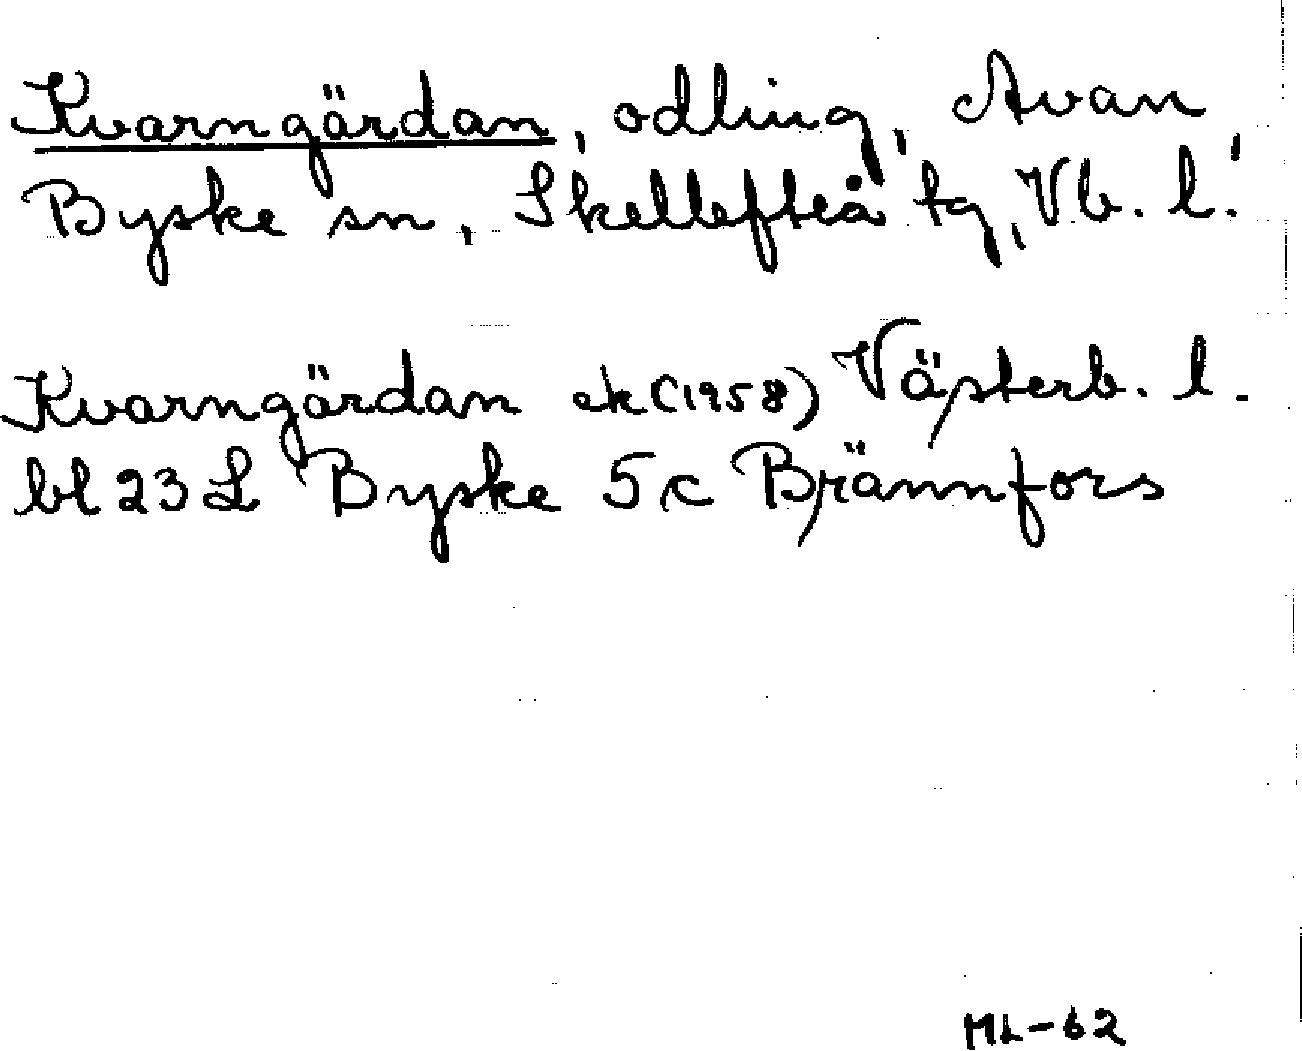 Kvarngärdan, odling, Avan,
Byske sn, Skellefteå tg, Vb. l.
Kvarngärdan ek (1958) Västerb. l.
bl 23 L Byske 5 c Brännfors
ML-62